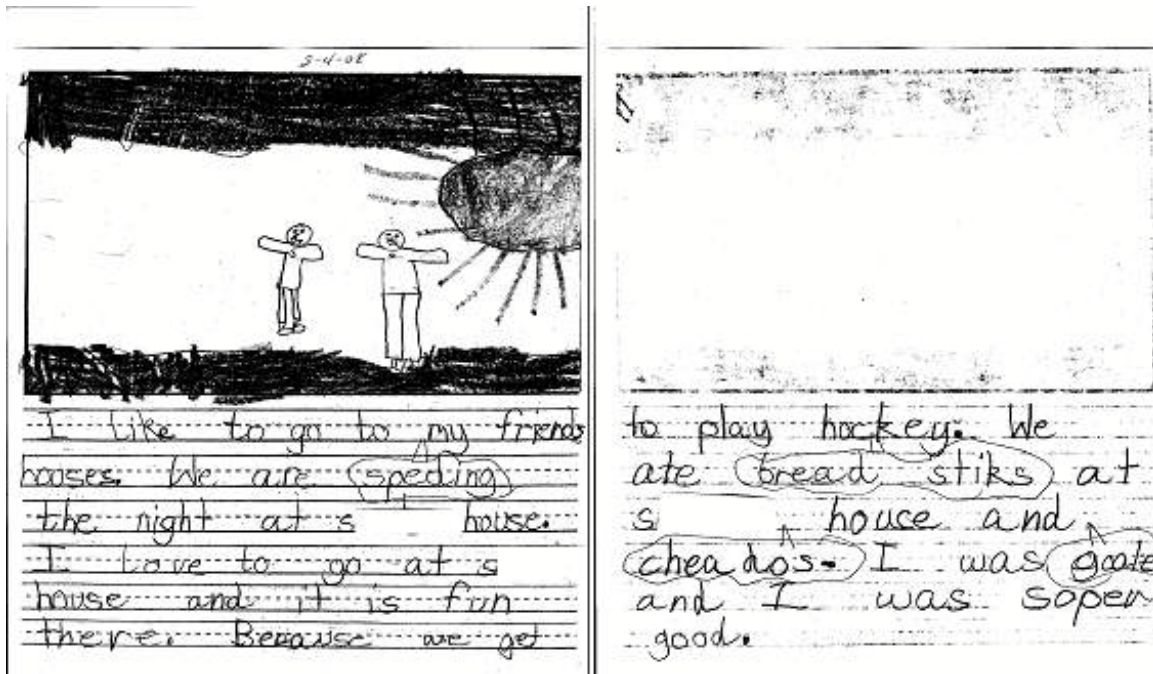 5-4-08
I like to go to my friends
houses. We are speding
the night at s house.
I love to go at s
house and it is fun
there. Because we get
to play hockey. We
ate bread stiks at
s house and
cheados. I was goale
and I was soper
good.